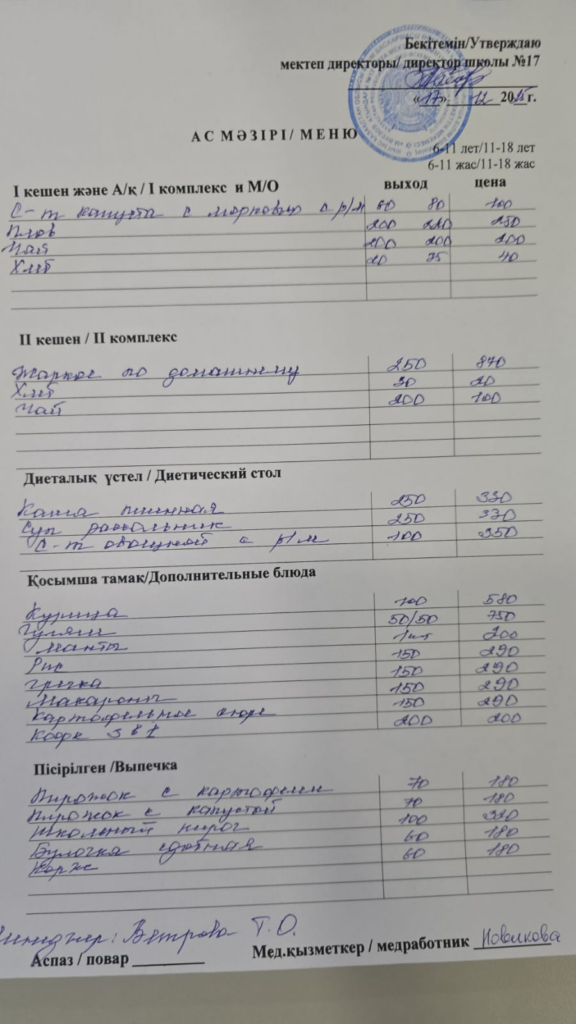 Бекітемін/Утверждаю
мектеп директоры/ директор школы №17
«17» 12 2025г.
АС МӘЗІРІ/ МЕНЮ
6-11 лет/11-18 лет
6-11 жас/11-18 жас
I кешен және А/қ / I комплекс и М/О выход цена
С-т капуста с морковью с р/м 60 80 100
Плов 200 220 250
Чай 200 200 200
Хлеб 20 35 40
II кешен / II комплекс
Жаркое по домашнему 250 870
Хлеб 30 20
Чай 200 100
Диеталық үстел / Диетический стол
Каша пшенная 250 330
Суп рассольник 250 330
С-т овощной с р/м 100 350
Қосымша тамақ/Дополнительные блюда
Курица 100 580
Гуляш 50/50 750
Манты 1шт 200
Рис 150 290
Гречка 150 290
Макароны 150 290
Картофельное пюре 150 290
Кофе 3 в 1 200 200
Пісірілген /Выпечка
Пирожок с картофелем 70 180
Пирожок с капустой 70 180
Школьный пирог 100 320
Булочка сдобная 60 180
Корж 60 180
Менеджер: Ветрова Т.О.
Аспаз / повар Мед.қызметкер / медработник Новикова